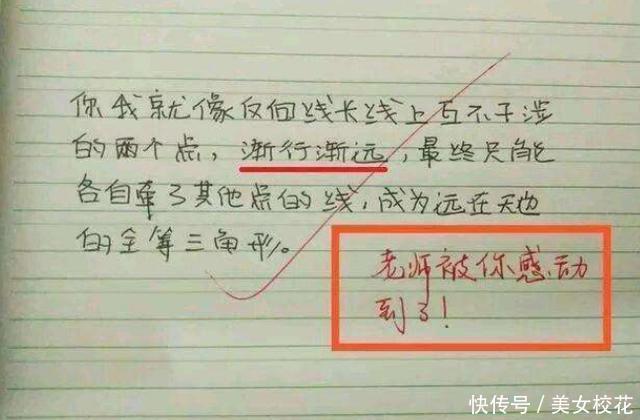 你我就像反向线长线上互不干涉
的两个点，渐行渐远，最终只能
各自牵了其他点的线，成为远在天边
的全等三角形。
老师被你感动
到了！
快传号／美女校花